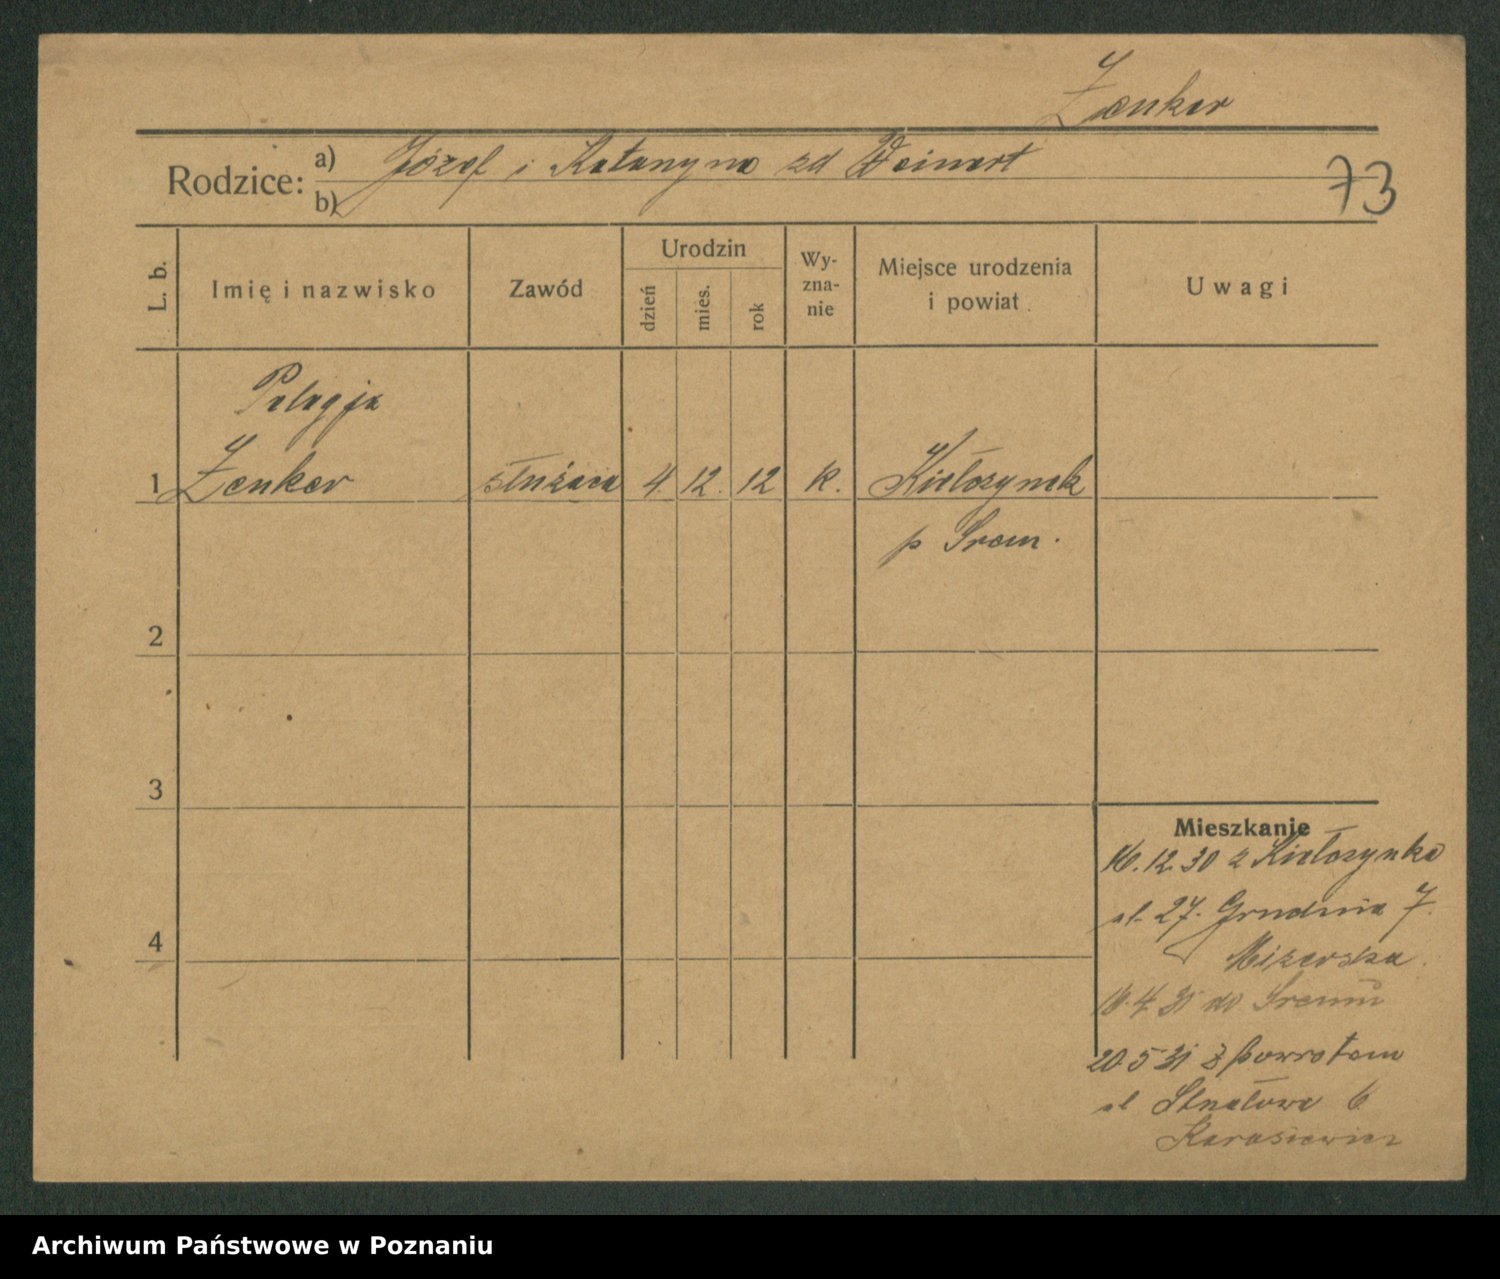 Zenker
Rodzice: a) Józef i Katarzyna zd Weinert
b)
73
L. b. Imię i nazwisko Zawód Urodzin dzień mies. rok Wy-zna-nie Miejsce urodzenia i powiat Uwagi
Pelagja
1 Zenker służąca 4. 12. 12 k. Kiełczynek
p Śrem.
2
3
Mieszkanie
16.12.30 z Kiełczynka
ul. 27. Grudnia 7.
4
Mizerska.
do Śremu
20.5 31 z powrotem
ul 6
Karasiewicz
Archiwum Państwowe w Poznaniu